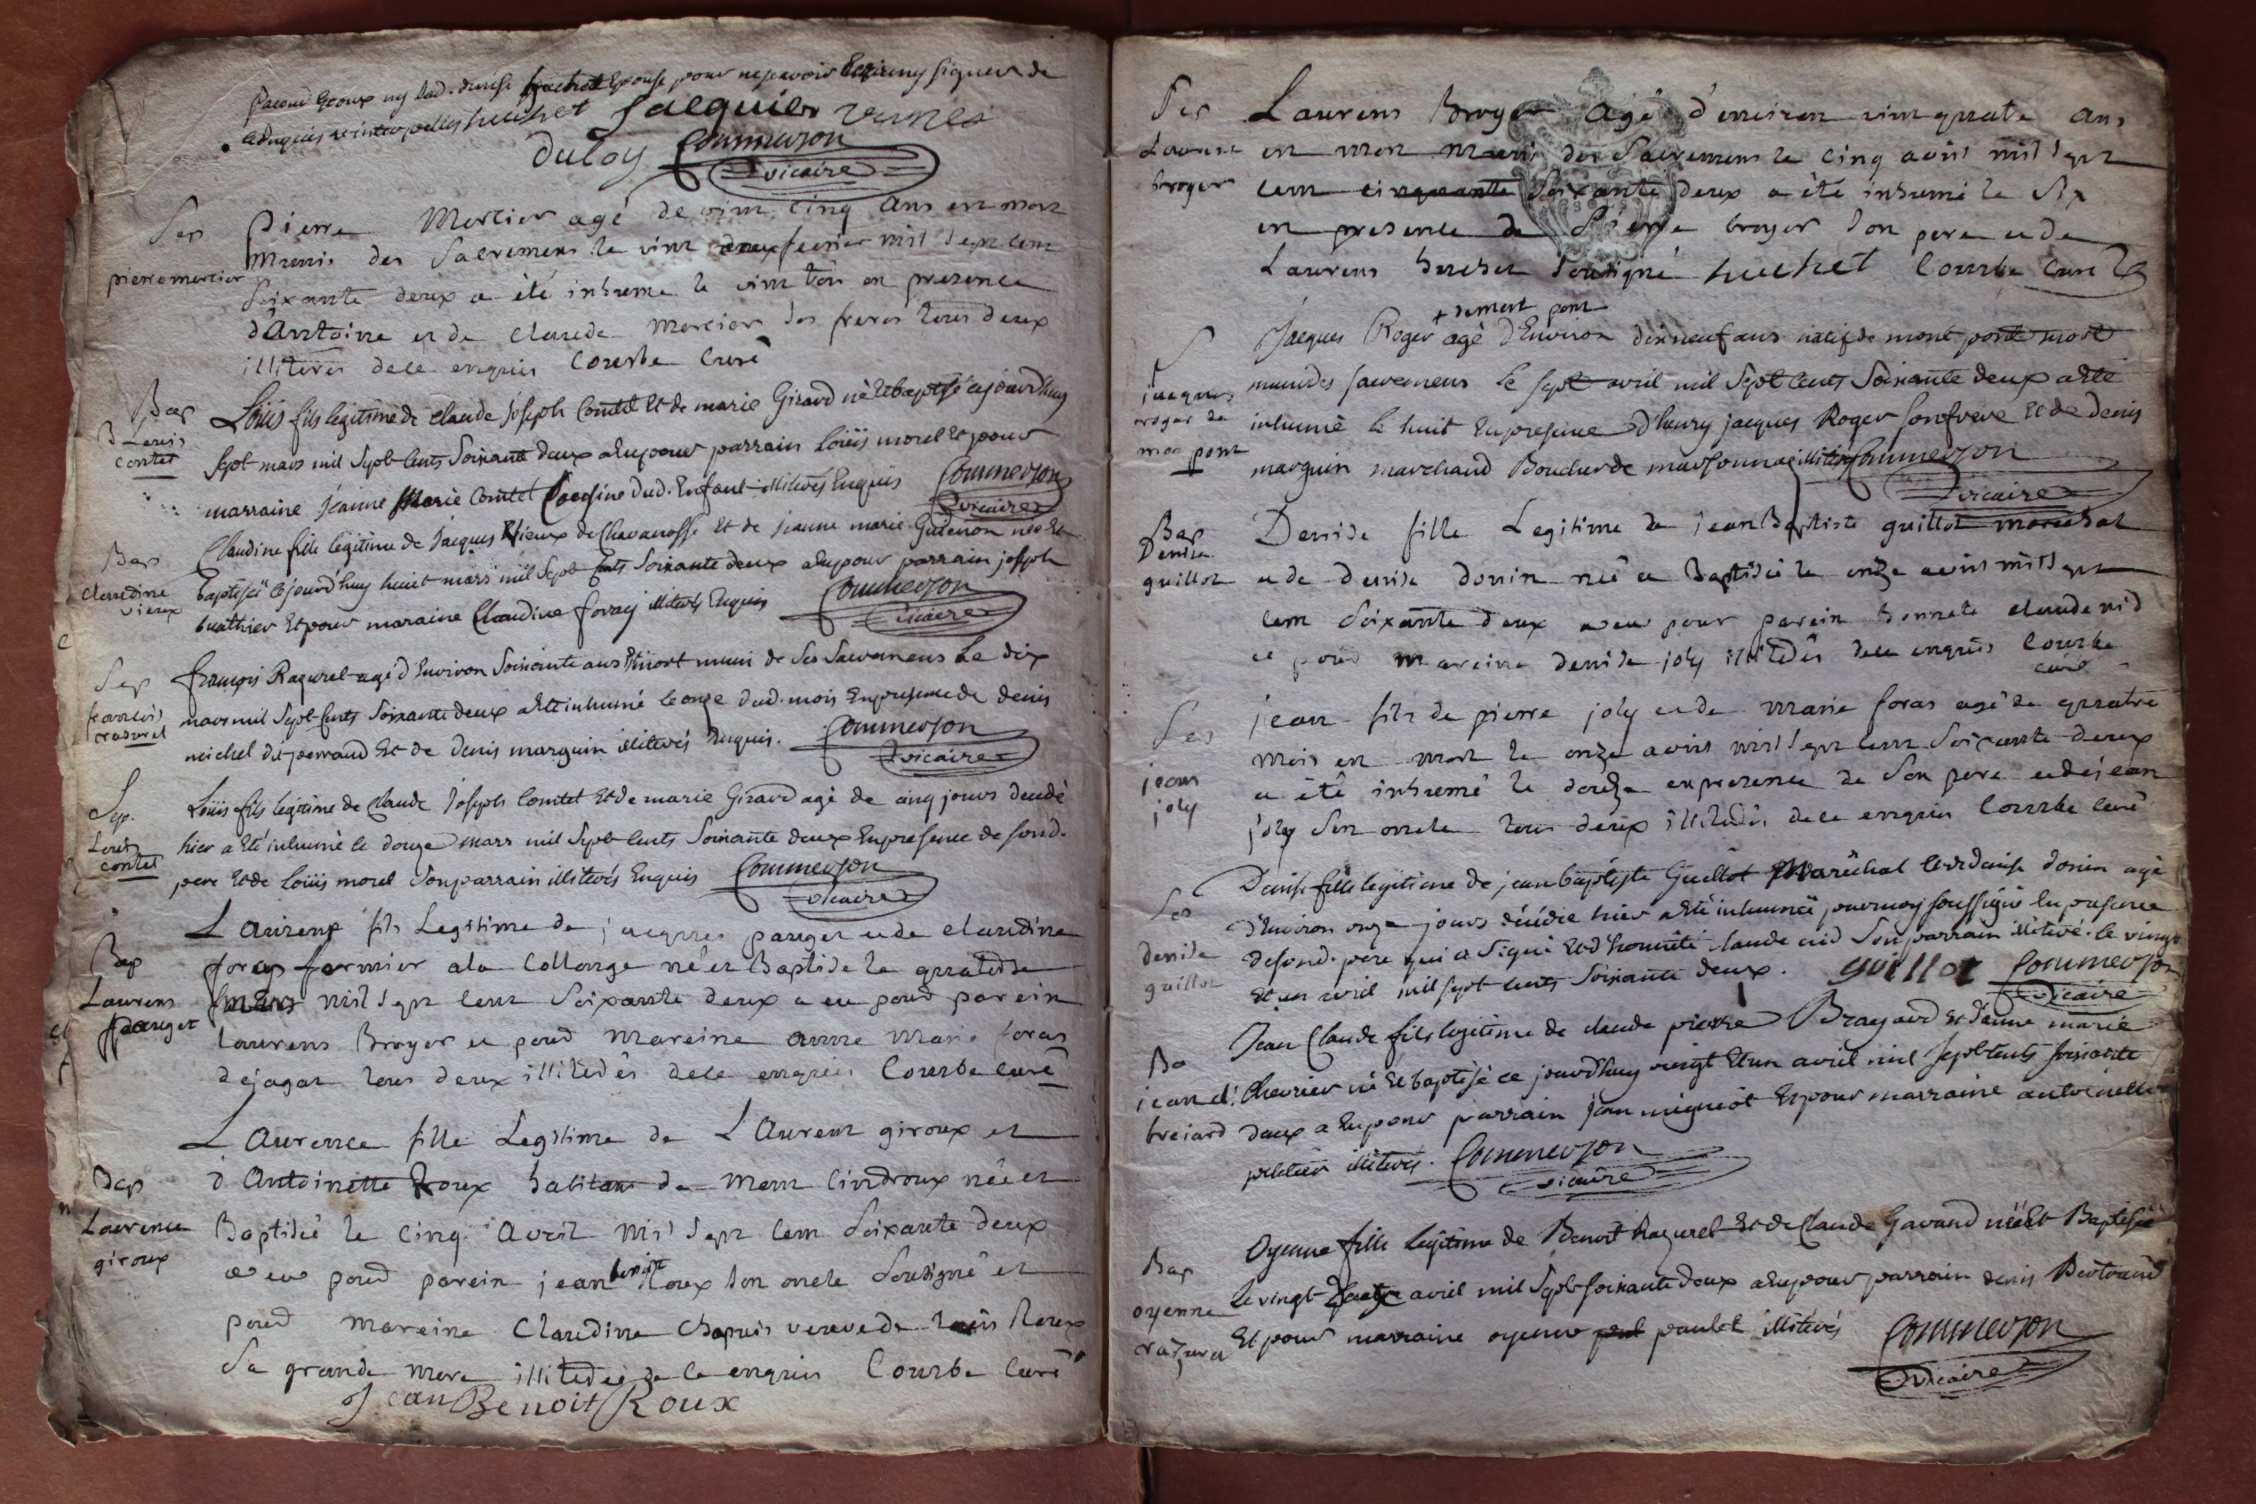 Epoux ny lad. denise huchet Epouse pour ne scavoir Ecrire ny signer de
ce Enquis et interpellés huchet Jacquier
duloy Commerson
vicaire
Sep
pierre mercier
pierre Mercier agé de vint cinq ans est mort
muni des Sacremens le vint deux fevrier mil Sept cent
Soixante deux a été inhumé le vint trois en presence
d'Antoine et de claude Mercier ses freres tous deux
illiterés de ce enquis Courbe Curé
Bap
Louis
contet
Loüis fils legitime de claude joseph Comtet Et de marie Girard né Et baptisé cejourd'huy
Sept mars mil Sept Cents Soixante deux a Eu pour parrain Loüis morel Et pour
marraine jeanne Marie Comtet Cousine dud. Enfant illiterés Enquis Commerson
vicaire
Bap
claudine
vieux
Claudine fille legitime de jacques Vieux de Chavanosse Et de jeanne marie Guienon née Et
baptisée cejourd'huy huit mars mil Sept Cents Soixante deux a Eu pour parrain joseph
buathier Et pour maraine Claudine foray illiterés Enquis Commerson
vicaire
Sep
francois
razurel
françois Razurel agé d'Environ Soixante ans Est mort muni de Ses Sacremens Le dix
mars mil Sept Cents Soixante deux a Eté inhumé le onze dud. mois En presence de denis
michel dit perraud Et de Denis marguin illiterés Enquis. Commerson
vicaire
Sep.
Louis
contet
Loüis fils legitime de Claude Joseph Comtet Et de marie Girard agé de cinq jours decedé
hier a Eté inhumé le douze mars mil Sept Cents Soixante deux En presence de sond.
pere Et de Loüis morel Son parrain illiterés Enquis Commerson
vicaire
Bap
Laurens
pauget
LAurens fils Legitime de jacques pauget et de claudine
foras fermier a la Collonge né et Baptisé le quatorse
Mars mil Sept Cent Soixante deux a eu pour parein
Laurens Broyer et pour Mareine Anne Marie foras
de jagat tous deux illiterés de ce enquis Courbe curé
Bap
Laurence
giroux
LAurence fille Legitime de LAurent giroux et
d'Antoinette Roux habitans de Mont Cindroux née et
Baptisée le cinq Avril Mil Sept Cent Soixante deux
a eu pour parein jean benoit Roux Son oncle Soussigné et
pour Mareine Claudine Chapuis veuve de Roux
Sa grande Mere illiterée de ce enquis Courbe Curé
Jean Benoit Roux
Sep
Laurent
broyer
Laurens Broyer Agé d'environ vint quatre ans
est mort Muni des Sacremens le cinq avril mil Sept
Cent cinquante Soixante deux a été inhumé le Six
en presence de Pierre broyer Son pere et de
Laurens huchet Soussigné huchet Courbe Curé
+ demont pont
jacques
roger de
mon pont
Jacques Roger agé d'Environ dix neuf ans natif de mont pont mort
muni des sacremens le Sept avril mil Sept Cents Soixante deux a Eté
inhumé le huit En presence d'henry jacques Roger Son frere Et de denis
marguin marchand Boucher de marsonnay illiteré Commerson
vicaire
Bap
Denise
guillot
Denise fille Legitime de jean Baptiste guillot marechal
et de denise donin née et Baptisée le onze avril mil Sept
Cent Soixante deux a eu pour parein honnete claude nid
et pour mareine denise joly illiterés de ce enquis Courbe
curé
Sep
jean
joly
jean fils de pierre joly et de marie foras agé de quatre
mois est mort le onze avril mil Sept Cent Soixante deux
a été inhumé le douze en presence de Son pere et de jean
joly Son oncle tous deux illiterés de ce enquis Courbe Curé
Sep
denise
guillot
Denise fille legitime de jean baptiste Guillot Maréchal Et de denise donin agé
d'Environ onze jours décédée hier a Eté inhumée par moy soussigné En presence
desond. pere qui a Signé Et d'honnête claude nid Son parrain illiteré. le vingt
Et un avril mil Sept Cents Soixante deux. guillot Commerson
vicaire
Ba
jean cl.
breiard
Jean Claude fils legitime de claude pierre Brayard Et d'anne marie
Chevrier né Et baptisé ce jourd'huy vingt Et un avril mil Sept Cents soixante
deux a Eu pour parrain jean migniot Et pour marraine antoinette
peletier illiterés. Commerson
vicaire
Bap
oyenne
razurel
Oyenne fille legitime de Benoit Razurel Et de Claude Gavand née Et Baptisée
le vingt quatre avril mil Sept Soixante deux a Eu pour parrain denis Bertrand
Et pour marraine oyenne paulet illiterés Commerson
vicaire